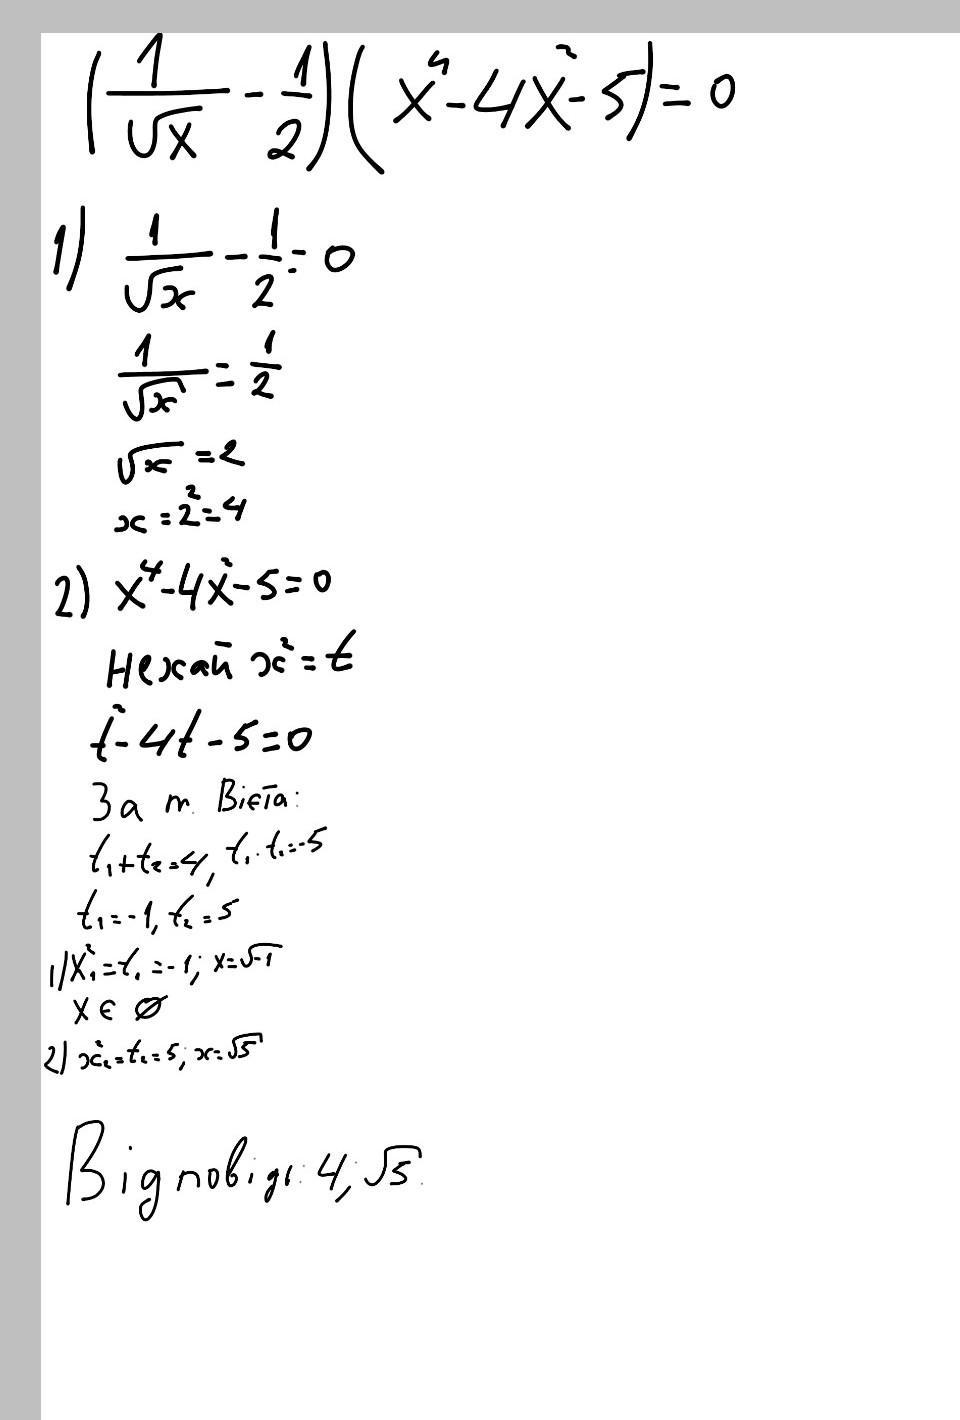 (1/√x - 1/2)(x⁴ - 4x² - 5) = 0
1) 1/√x - 1/2 = 0
1/√x = 1/2
√x = 2
x = 2² = 4
2) x⁴ - 4x² - 5 = 0
Нехай x² = t
t² - 4t - 5 = 0
За т. Вієта:
t₁ + t₂ = 4, t₁ · t₂ = -5
t₁ = -1, t₂ = 5
1) x₁² = t₁ = -1; x = √-1
x ∈ ∅
2) x₂² = t₂ = 5; x = √5
Відповіді: 4; √5.